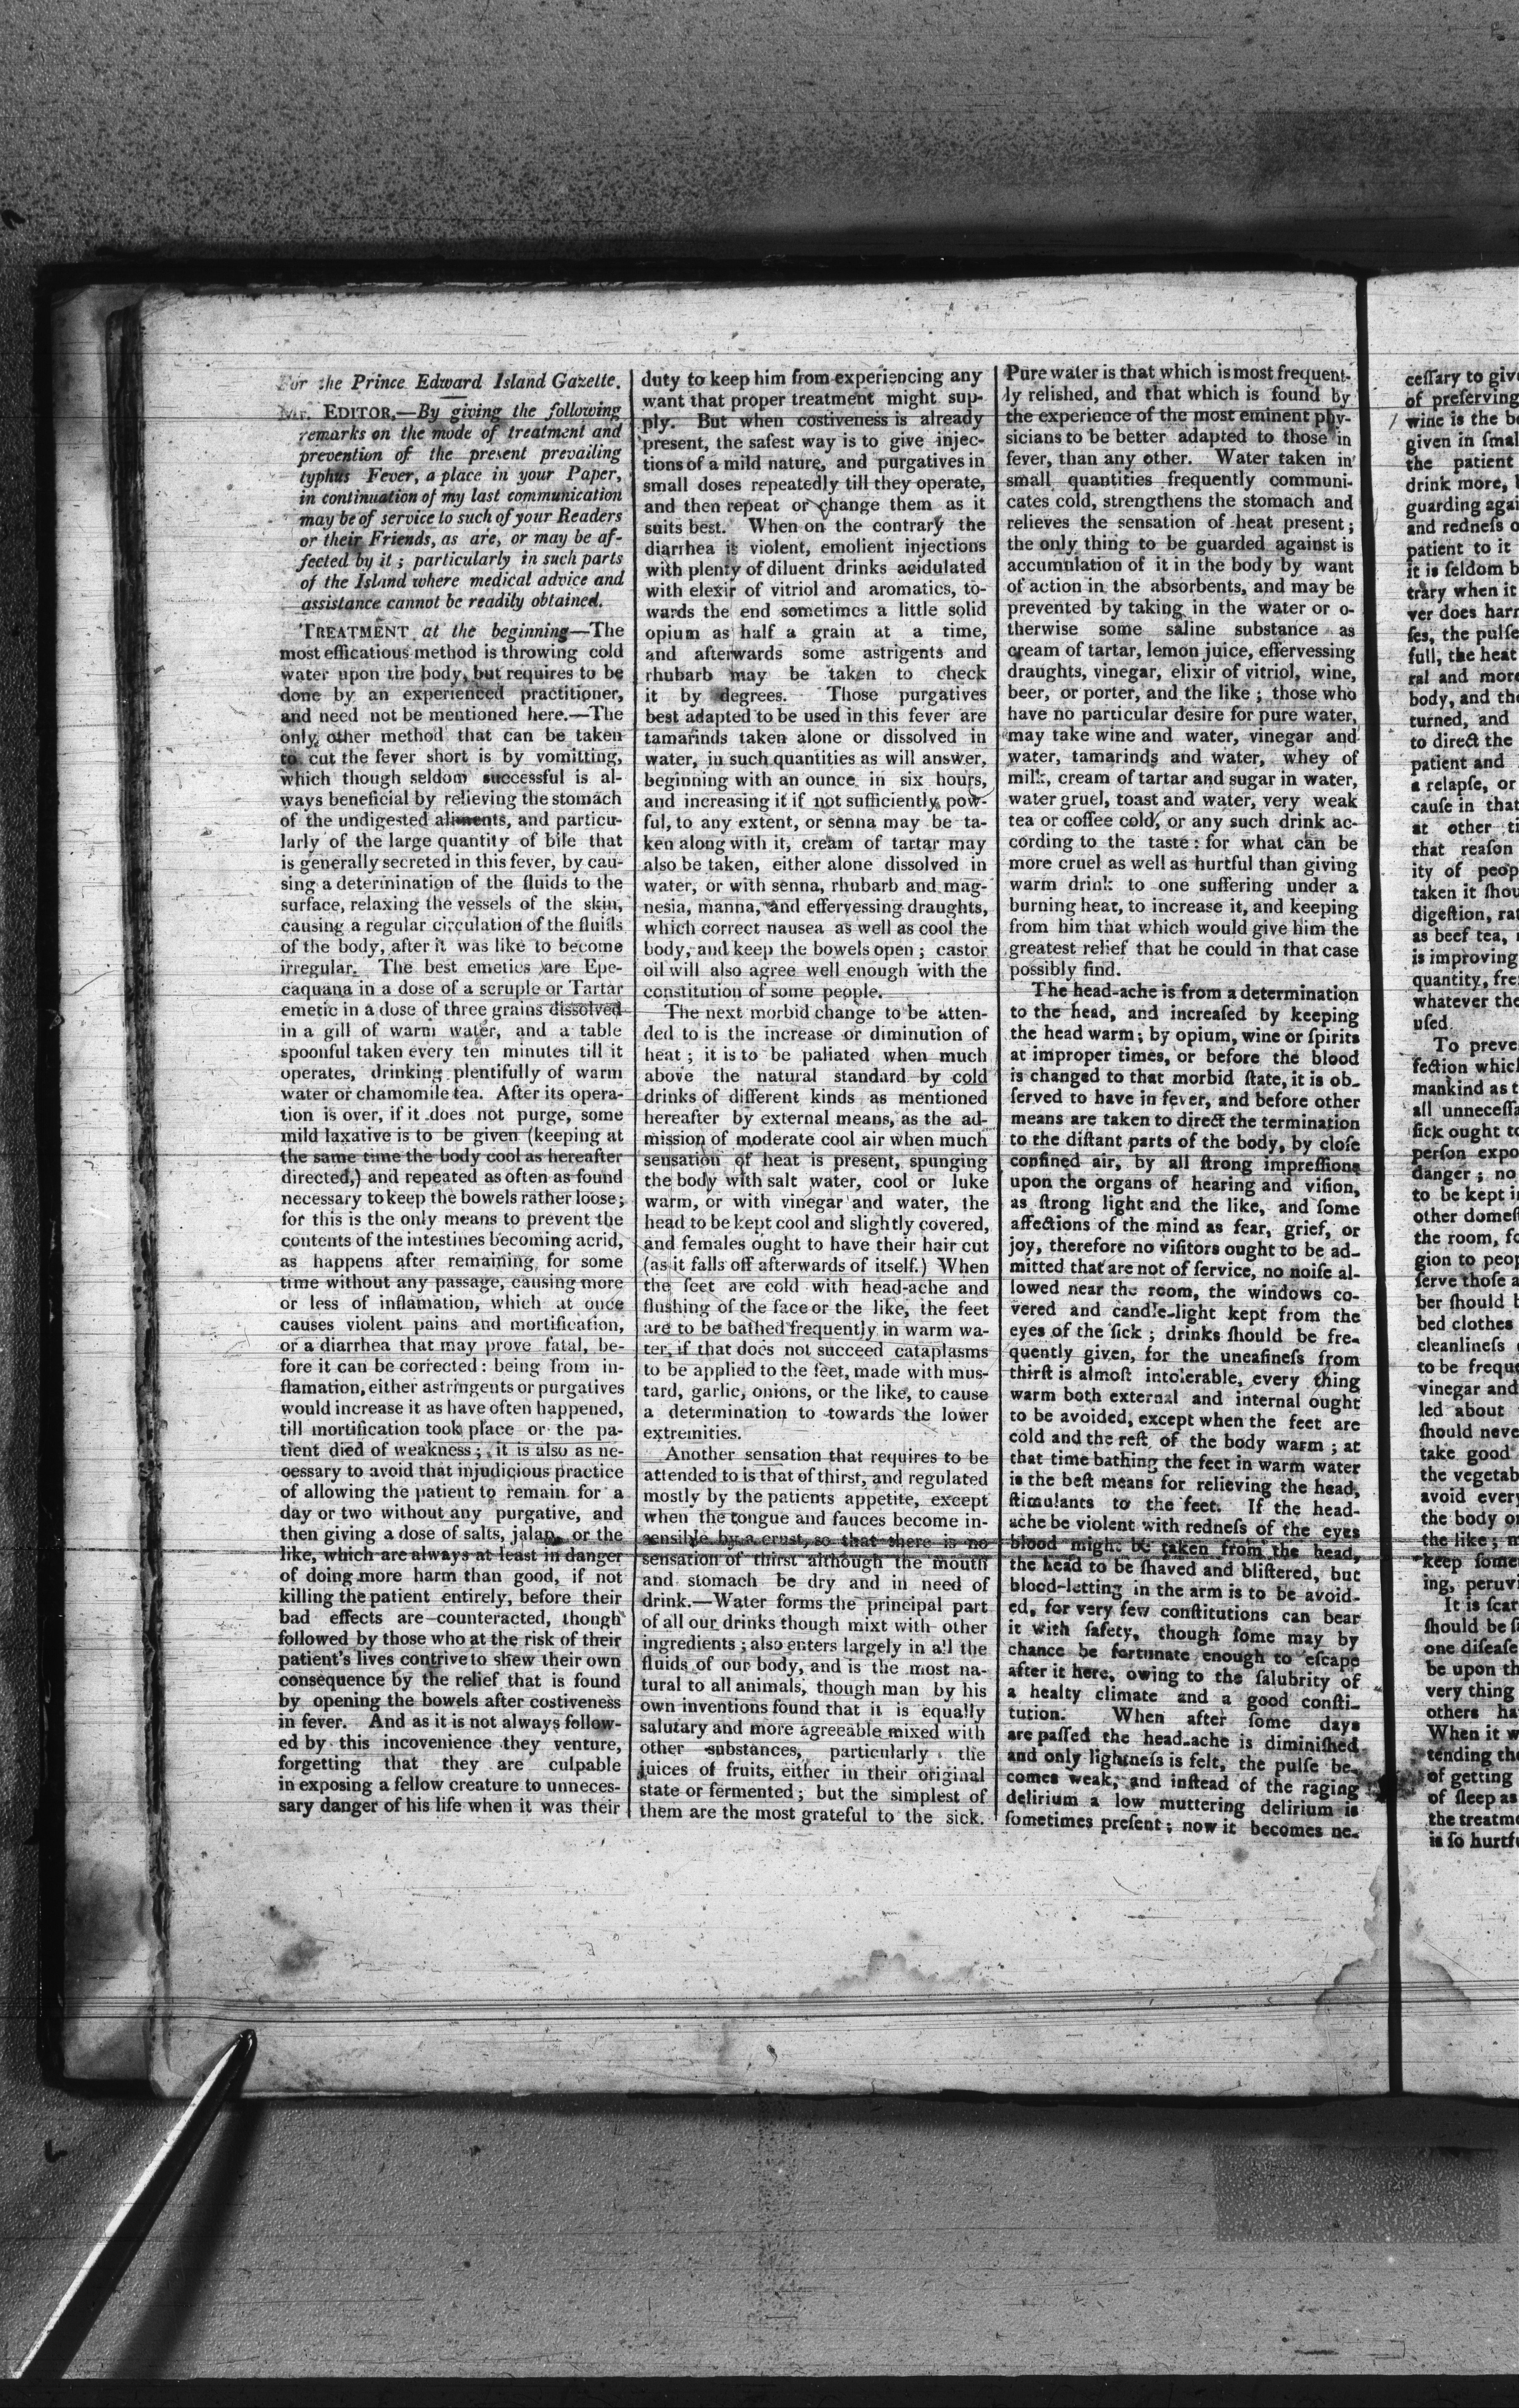 For the Prince Edward Island Gazette.
Mr. EDITOR,—By giving the following
remarks on the mode of treatment and
prevention of the present prevailing
typhus Fever, a place in your Paper,
in continuation of my last communication
may be of service to such of your Readers
or their Friends, as are, or may be af-
fected by it ; particularly in such parts
of the Island where medical advice and
assistance cannot be readily obtained.
TREATMENT at the beginning—The
most efficatious method is throwing cold
water upon the body, but requires to be
done by an experienced practitioner,
and need not be mentioned here.—The
only other method that can be taken
to cut the fever short is by vomitting,
which though seldom successful is al-
ways beneficial by relieving the stomach
of the undigested aliments, and particu-
larly of the large quantity of bile that
is generally secreted in this fever, by cau-
sing a determination of the fluids to the
surface, relaxing the vessels of the skin,
causing a regular circulation of the fluids
of the body, after it was like to become
irregular. The best emetics are Epe-
caquana in a dose of a scruple or Tartar
emetic in a dose of three grains dissolved
in a gill of warm water, and a table
spoonful taken every ten minutes till it
operates, drinking plentifully of warm
water or chamomile tea. After its opera-
tion is over, if it does not purge, some
mild laxative is to be given (keeping at
the same time the body cool as hereafter
directed,) and repeated as often as found
necessary to keep the bowels rather loose ;
for this is the only means to prevent the
contents of the intestines becoming acrid,
as happens after remaining for some
time without any passage, causing more
or less of inflamation, which at once
causes violent pains and mortification,
or a diarrhea that may prove fatal, be-
fore it can be corrected : being from in-
flamation, either astringents or purgatives
would increase it as have often happened,
till mortification took place or the pa-
tient died of weakness ; it is also as ne-
cessary to avoid that injudicious practice
of allowing the patient to remain for a
day or two without any purgative, and
then giving a dose of salts, jalap, or the
like, which are always at least in danger
of doing more harm than good, if not
killing the patient entirely, before their
bad effects are counteracted, though
followed by those who at the risk of their
patient's lives contrive to shew their own
consequence by the relief that is found
by opening the bowels after costiveness
in fever. And as it is not always follow-
ed by this incovenience they venture,
forgetting that they are culpable
in exposing a fellow creature to unneces-
sary danger of his life when it was their
duty to keep him from experiencing any
want that proper treatment might sup-
ply. But when costiveness is already
present, the safest way is to give injec-
tions of a mild nature, and purgatives in
small doses repeatedly till they operate,
and then repeat or change them as it
suits best. When on the contrary the
diarrhea is violent, emolient injections
with plenty of diluent drinks acidulated
with elexir of vitriol and aromatics, to-
wards the end sometimes a little solid
opium as half a grain at a time,
and afterwards some astrigents and
rhubarb may be taken to check
it by degrees. Those purgatives
best adapted to be used in this fever are
tamarinds taken alone or dissolved in
water, in such quantities as will answer,
beginning with an ounce in six hours,
and increasing it if not sufficiently pow-
ful, to any extent, or senna may be ta-
ken along with it, cream of tartar may
also be taken, either alone dissolved in
water, or with senna, rhubarb and mag-
nesia, manna, and effervessing draughts,
which correct nausea as well as cool the
body, and keep the bowels open ; castor
oil will also agree well enough with the
constitution of some people.
The next morbid change to be atten-
ded to is the increase or diminution of
heat ; it is to be paliated when much
above the natural standard by cold
drinks of different kinds as mentioned
hereafter by external means, as the ad-
mission of moderate cool air when much
sensation of heat is present, spunging
the body with salt water, cool or luke
warm, or with vinegar and water, the
head to be kept cool and slightly covered,
and females ought to have their hair cut
(as it falls off afterwards of itself.) When
the feet are cold with head-ache and
flushing of the face or the like, the feet
are to be bathed frequently in warm wa-
ter, if that does not succeed cataplasms
to be applied to the feet, made with mus-
tard, garlic, onions, or the like, to cause
a determination to towards the lower
extremities.
Another sensation that requires to be
attended to is that of thirst, and regulated
mostly by the patients appetite, except
when the tongue and fauces become in-
sensible by a crust, so that there is no
sensation of thirst although the mouth
and stomach be dry and in need of
drink.—Water forms the principal part
of all our drinks though mixt with other
ingredients ; also enters largely in all the
fluids of our body, and is the most na-
tural to all animals, though man by his
own inventions found that it is equally
salutary and more agreeable mixed with
other substances, particularly the
juices of fruits, either in their original
state or fermented ; but the simplest of
them are the most grateful to the sick.
Pure water is that which is most frequent-
ly relished, and that which is found by
the experience of the most eminent phy-
sicians to be better adapted to those in
fever, than any other. Water taken in
small quantities frequently communi-
cates cold, strengthens the stomach and
relieves the sensation of heat present ;
the only thing to be guarded against is
accumulation of it in the body by want
of action in the absorbents, and may be
prevented by taking in the water or o-
therwise some saline substance as
cream of tartar, lemon juice, effervessing
draughts, vinegar, elixir of vitriol, wine,
beer, or porter, and the like ; those who
have no particular desire for pure water,
may take wine and water, vinegar and
water, tamarinds and water, whey of
milk, cream of tartar and sugar in water,
water gruel, toast and water, very weak
tea or coffee cold, or any such drink ac-
cording to the taste : for what can be
more cruel as well as hurtful than giving
warm drink to one suffering under a
burning heat, to increase it, and keeping
from him that which would give him the
greatest relief that he could in that case
possibly find.
The head-ache is from a determination
to the head, and increaſed by keeping
the head warm ; by opium, wine or ſpirits
at improper times, or before the blood
is changed to that morbid ſtate, it is ob-
ſerved to have in fever, and before other
means are taken to direct the termination
to the diſtant parts of the body, by cloſe
confined air, by all ſtrong impreſſions
upon the organs of hearing and viſion,
as ſtrong light and the like, and ſome
affections of the mind as fear, grief, or
joy, therefore no viſitors ought to be ad-
mitted that are not of ſervice, no noiſe al-
lowed near the room, the windows co-
vered and candle-light kept from the
eyes of the ſick ; drinks ſhould be fre-
quently given, for the uneaſineſs from
thirſt is almoſt intolerable, every thing
warm both external and internal ought
to be avoided, except when the feet are
cold and the reſt of the body warm ; at
that time bathing the feet in warm water
is the beſt means for relieving the head,
ſtimulants to the feet. If the head-
ache be violent with redneſs of the eyes
blood might be taken from the head,
the head to be ſhaved and bliſtered, but
blood-letting in the arm is to be avoid-
ed, for very few conſtitutions can bear
it with ſafety, though ſome may by
chance be fortunate enough to eſcape
after it here, owing to the ſalubrity of
a healty climate and a good conſti-
tution. When after ſome days
are paſſed the head-ache is diminiſhed
and only lightneſs is felt, the pulſe be-
comes weak, and inſtead of the raging
delirium a low muttering delirium is
ſometimes preſent ; now it becomes ne-
ceſſary to give
of preſerving
wine is the
given in
the patient
drink more,
guarding
and redneſs
patient to it
it is ſeldom
trary when it
ver does
ſes, the pulſe
full, the heat
ral and more
body, and
turned, and
to direct the
patient and
a relapſe, or
cauſe in that
at other
that reaſon
ity of
taken it
digeſtion,
as beef tea,
is improving
quantity,
whatever the
uſed.
To
fection which
mankind as
all
ſick ought to
perſon
danger ; no
to be kept
other
the room,
gion to
ſerve thoſe
ber ſhould
bed clothes
cleanlineſs
to be
vinegar and
led about
ſhould
take good
the
avoid every
the body or
the like ;
keep
ing,
It is
ſhould be
one diſeaſe
be upon
very thing
others
When it
tending
of getting
of ſleep as
the
is ſo